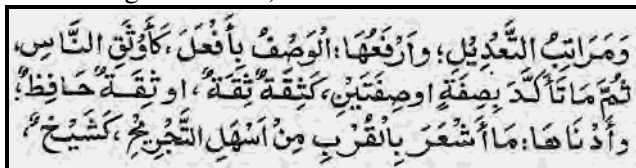 وَمَرَاتِبُ التَّعْدِيْلِ؛ وَاَرْفَعُهَا: الْوَصْفُ بِأَفْعَلَ، كَأَوْثَقِ النَّاسِ،
ثُمَّ مَا تَأَكَّدَ بِصِفَةٍ اوصِفَتَيْنِ، كَثِقَةٌ ثِقَةٌ، اوثِقَةٌ حَافِظٌ؛
وأَدْنَاهَا: مَا أَشْعَرَ بِالْقُرْبِ مِنْ اَسْهَلِ التَّجْرِيْحِ، كَشَيْخٌ،